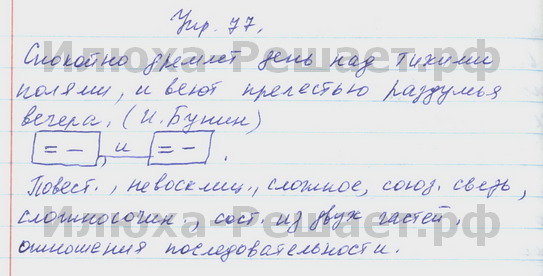 Упр. 77.
Спокойно дремлет день над тихими
полями, и веют прелестью раздумья
вечера. (И. Бунин)
= — , и = — .
Повест., невосклиц., сложное, союз. связь,
сложносочин., сост. из двух частей,
отношения последовательности.
Илюха-Решает.рф
Илюха-Решает.рф